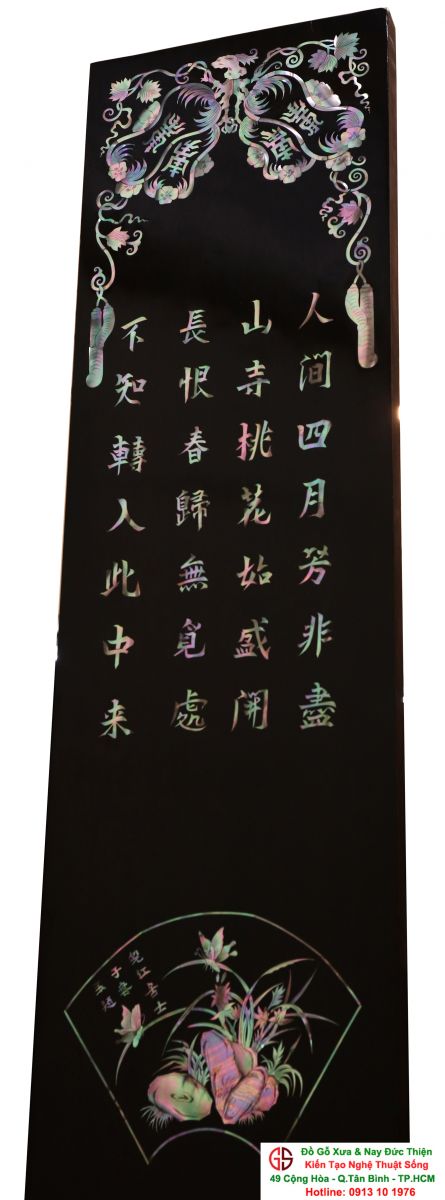 人澗四月芳非盡
山寺桃花始盛開
長恨春歸無覓處
不知轉入此中来
Đồ Gỗ Xưa & Nay Đức Thiện
Kiến Tạo Nghệ Thuật Sống
49 Cộng Hòa - Q.Tân Bình - TP.HCM
Hotline: 0913 10 1976